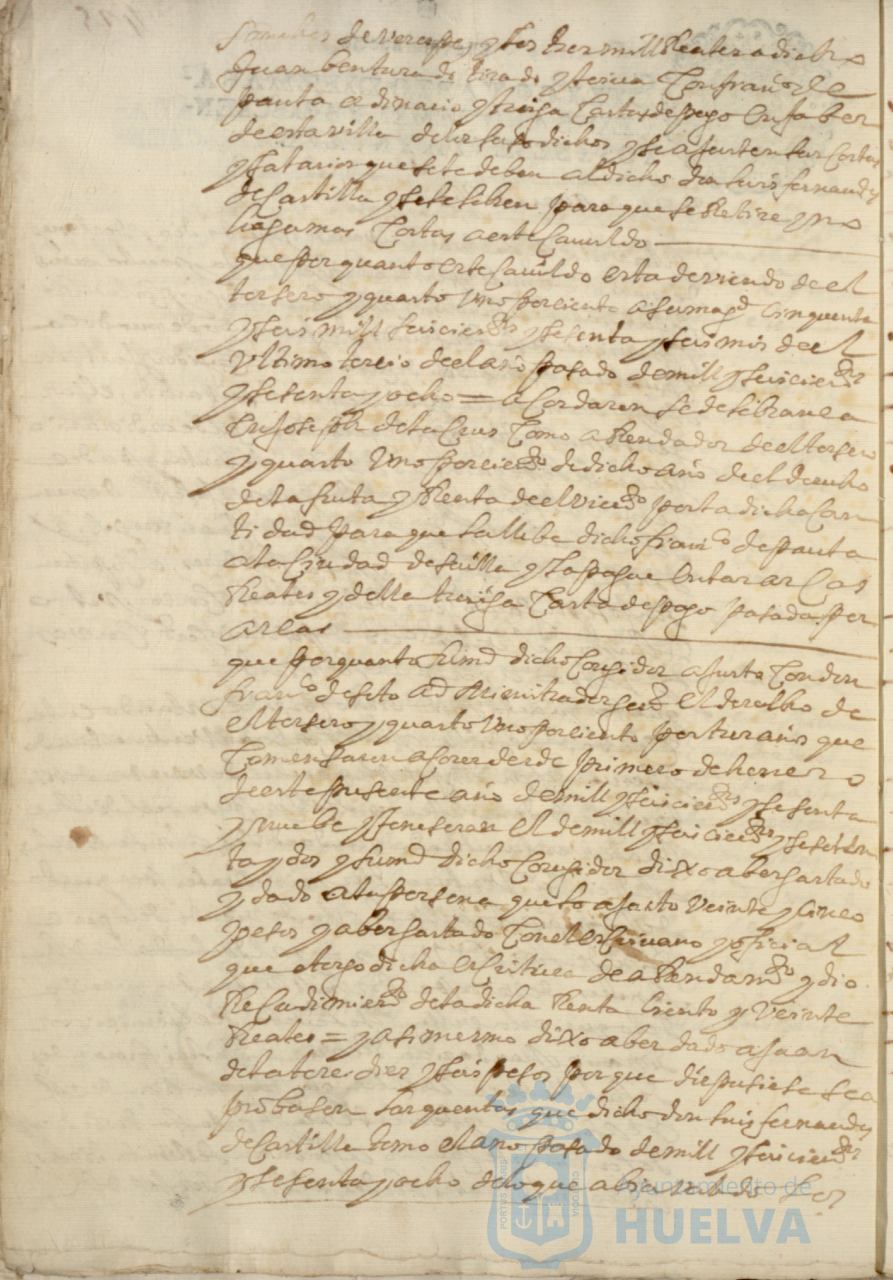 de verespej y los tres mill Reales a dicho
Juan bentura de tirado y seiva Con fran.co de
pauta ordinario y traiga Cartas de pago
de esta villa de los suso dichos y se ajusten sus Cortas
y salarios que se le deben al dicho don luis fernandes
de Castilla y se le libren para que se Retire y no
haga mas Costas a este Cauildo
que por quanto este Cauildo esta deviendo de el
tersero y quarto Uno por ciento a su mag.d cinquenta
y seis mill seiscien.tos y sesenta y seis mrs de el
Ultimo tercio de el año pasado de mill y seiscien.tos
y sesenta y ocho = acordaron se de librança a
Joseph de la Crus Como aRendador de el tersero
y quarto Uno por cien.to de dicho año de el derecho
de la fruta y Renta de el vien.to por la dicha Can
tidad para que la llebe dicho fran.co de pauta
a la Ciudad de seuilla y la pague en las arcas
Reales y de lla traiga Carta de pago pasada por
arcas
que por quanto su md dicho Corregidor ajusto Con don
fran.co de soto administrador gen.l el derecho de
el tersero y quarto Uno por ciento por tres años que
Comensaron a correr desde primero de henero
de este presente año de mill y seiscien.tos y sesenta
y nuebe y feneseran el de mill y seiscien.tos y seten
ta y dos y su md dicho Corregidor dixo aber gastado
y dado a la persona que lo ajusto Veinte y Cinco
pesos y aber gastado Con el escriuano y oficial
que otorgo dicha escritura de aRendam.to y dio
Recudimien.to de la dicha Renta ciento y Veinte
Reales = y asi mesmo dixo aber dado a Juan
de la tore dies y seis pesos por que dispusiese se a
probasen las quentas que dicho don luis fernandes
de Castilla tomo el año pasado de mill y seiscien.tos
y sesenta y ocho de lo que abia
Ayuntamiento de
HUELVA